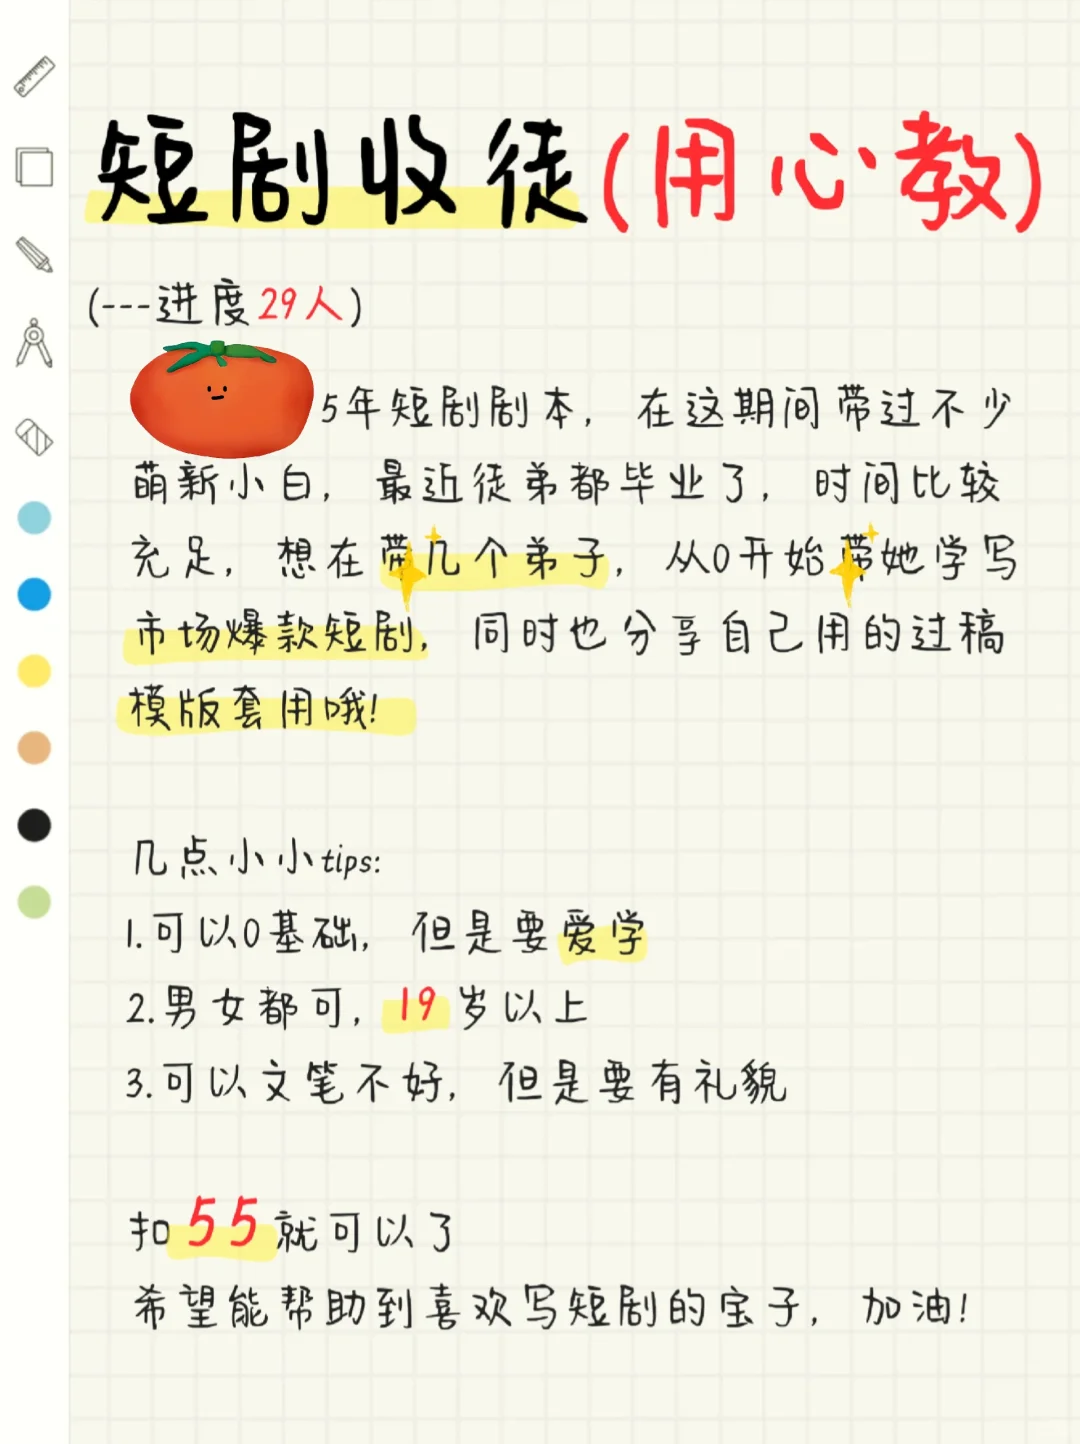 短剧收徒(用心教)
(---进度29人)
5年短剧剧本，在这期间带过不少
萌新小白，最近徒弟都毕业了，时间比较
充足，想在带几个弟子，从0开始带她学写
市场爆款短剧，同时也分享自己用的过稿
模版套用哦!
几点小小tips:
1.可以0基础，但是要爱学
2.男女都可，19岁以上
3.可以文笔不好，但是要有礼貌
扣55就可以了
希望能帮助到喜欢写短剧的宝子，加油!